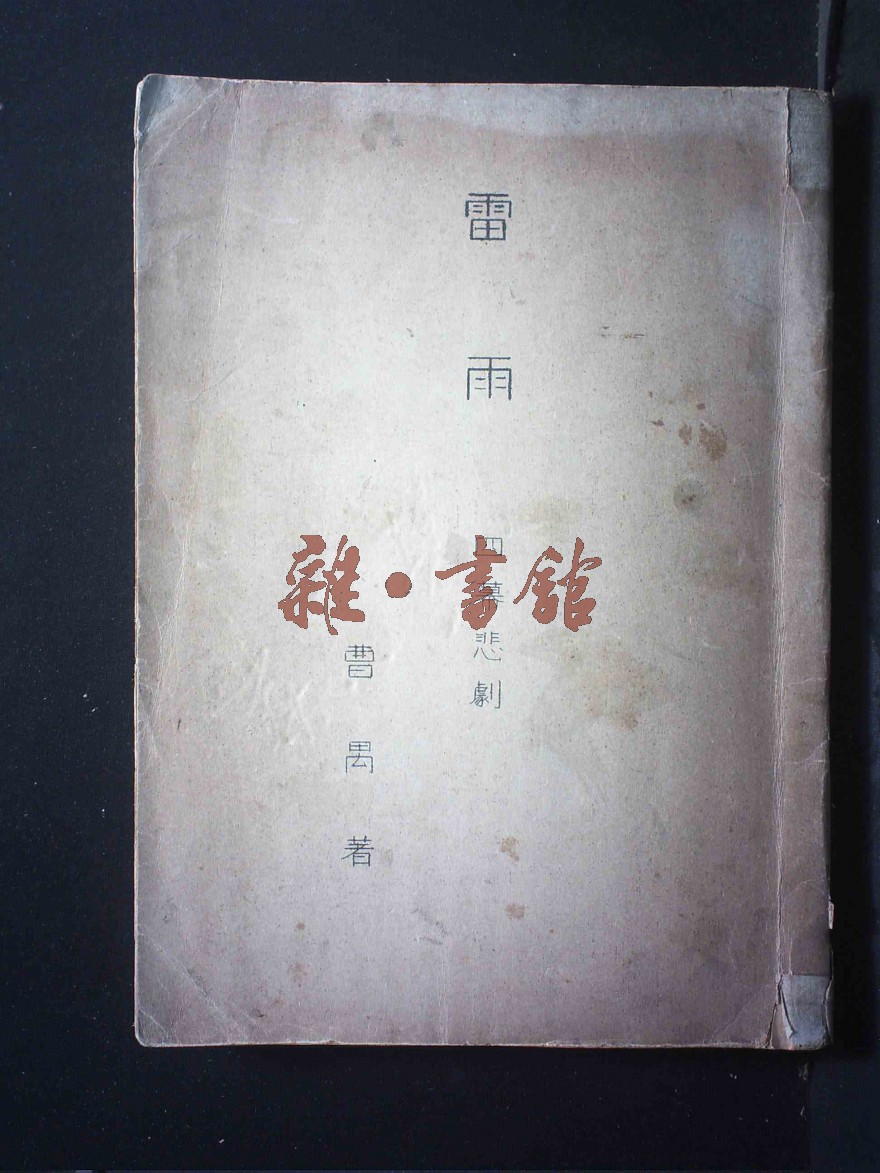 雷雨
四幕悲劇
曹禺著
雜·書館